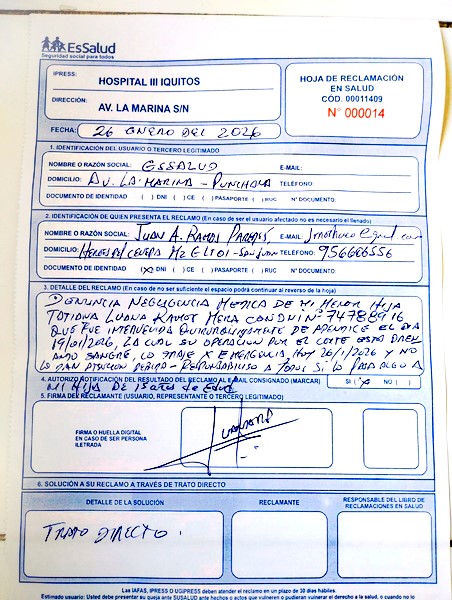 EsSalud
Seguridad social para todos
IPRESS: HOSPITAL III IQUITOS
DIRECCIÓN: AV. LA MARINA S/N
HOJA DE RECLAMACIÓN
EN SALUD
CÓD. 00011409
N° 000014
FECHA: 26 ENERO DEL 2026
1. IDENTIFICACIÓN DEL USUARIO O TERCERO LEGITIMADO
NOMBRE O RAZÓN SOCIAL: ESSALUD E-MAIL:
DOMICILIO: AV. LA MARINA - PUNCHANA TELÉFONO:
DOCUMENTO DE IDENTIDAD ( ) DNI ( ) CE ( ) PASAPORTE ( ) RUC N° DOCUMENTO:
2. IDENTIFICACIÓN DE QUIEN PRESENTA EL RECLAMO (En caso de ser el usuario afectado no es necesario el llenado)
NOMBRE O RAZÓN SOCIAL: JUAN A. RAMOS PAREDES, E-MAIL:
DOMICILIO: HEROES DEL CENEPA MZ E LT 01 - SAN JUAN TELÉFONO: 956606556
DOCUMENTO DE IDENTIDAD (X) DNI ( ) CE ( ) PASAPORTE ( ) RUC N° DOCUMENTO:
3. DETALLE DEL RECLAMO (En caso de no ser suficiente el espacio podrá continuar al reverso de la hoja)
DENUNCIA NEGLIGENCIA MEDICA DE MI MENOR HIJA
LUANA CON DNI N° 74788916
QUE FUE INTERVENIDA QUIRURGICAMENTE DE APENDICE EL DIA
19/01/2026, LA CUAL SU OPERACION POR EL CORTE ESTA
SANGRE, LO TRAJE X EMERGENCIA, HOY 26/1/2026 Y NO
LO DAN ATENCION DEBIDA - RESPONSABILISO A TODOS SI LO PASA ALGO A
4. AUTORIZO NOTIFICACIÓN DEL RESULTADO DEL RECLAMO AL E-MAIL CONSIGNADO (MARCAR) SI (X) NO ( )
MI HIJA DE 15 AÑOS DE EDAD
5. FIRMA DEL RECLAMANTE (USUARIO, REPRESENTANTE O TERCERO LEGITIMADO)
FIRMA O HUELLA DIGITAL
EN CASO DE SER PERSONA
ILETRADA
6. SOLUCIÓN A SU RECLAMO A TRAVÉS DE TRATO DIRECTO
DETALLE DE LA SOLUCIÓN
RECLAMANTE
RESPONSABLE DEL LIBRO DE
RECLAMACIONES EN SALUD
TRATO DIRECTO.
Las IAFAS, IPRESS O UGIPRESS deben atender el reclamo en un plazo de 30 días hábiles.
Estimado usuario: Usted debe presentar su queja ante SUSALUD ante hechos o actos que vulneren o pudieran vulnerar el derecho a la salud, o cuando no le